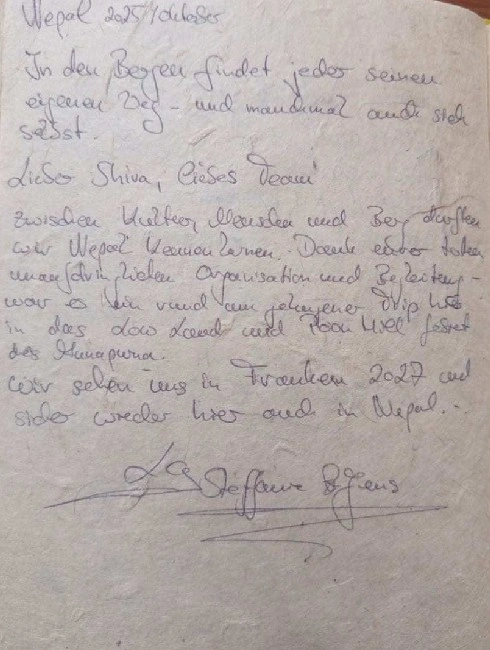 Nepal 2025/Oktober
In den Bergen findet jeder seinen
eigenen Weg - und manchmal auch sich
selbst.
Lieber Shiva, liebes Team
zwischen Kultur, Menschen und Berg durften
wir Nepal kennenlernen. Dank eurer tollen
Organisation und Begleitung -
war es ein rund um gelungener Trip
in das Low Land und Poon Hill
des Annapurna.
Wir sehen uns in Franken 2027 und
sicher wieder hier auch in Nepal..
Steffanie &